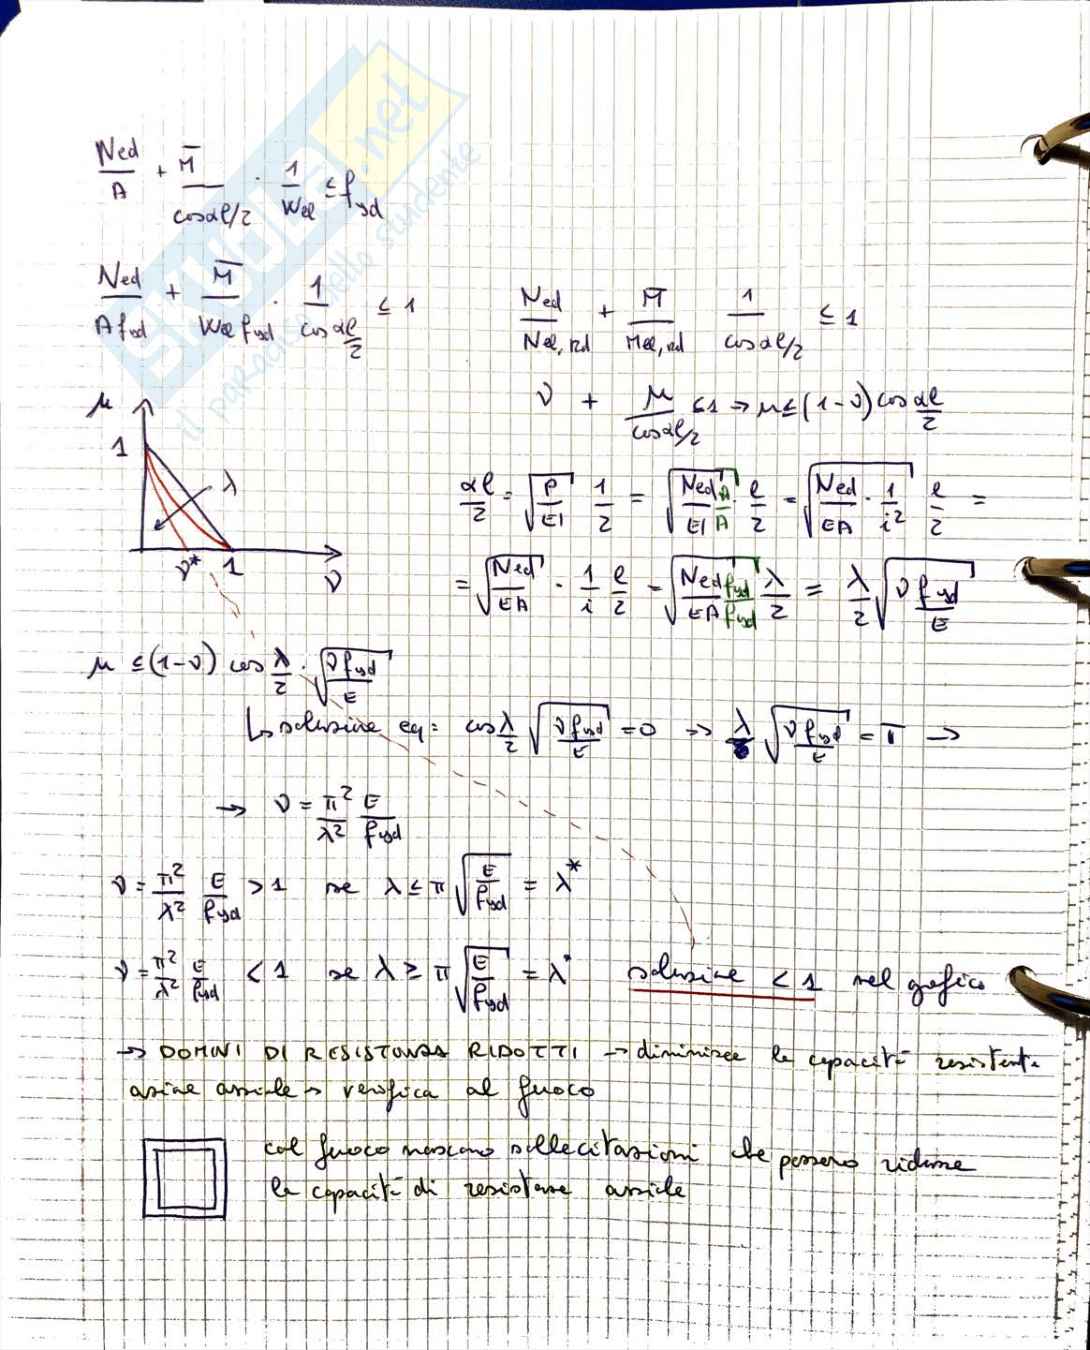 Ned/A + M̄/cosαl/2 · 1/Wel ≤ fyd
Ned/(A fyd) + M̄/(Wel fyd) · 1/(cos αl/2) ≤ 1
Ned/Nel,rd + M̄/Mel,rd 1/cosαl/2 ≤ 1
ν + μ/cosαl/2 ≤1 → μ≤(1-ν) cos αl/2
μ
1
λ
ν* 1 ν
αl/2 = √(P/EI) 1/2 = √(Ned/EI A/A) l/2 = √(Ned/EA · 1/i²) l/2 =
= √(Ned/EA) · 1/i l/2 = √(Ned fyd/EA fyd) λ/2 = λ/2 √(ν fyd/E)
μ ≤(1-ν) cos λ/2 · √(ν fyd/E)
↳ soluzione eq: cos λ/2 √(ν fyd/E) = 0 → λ √(ν fyd/E) = π →
→ ν = π²/λ² E/fyd
ν = π²/λ² E/fyd > 1 se λ ≤ π √(E/fyd) = λ*
ν = π²/λ² E/fyd < 1 se λ ≥ π √(E/fyd) = λ* soluzione < 1 nel grafico
→ DOMINI DI RESISTENZA RIDOTTI → diminisce la capacità resistente
azione assiale → verifica al fuoco
col fuoco nascono sollecitazioni che possono ridurre
la capacità di resistenze assiale
skuola.net
il paradiso dello studente